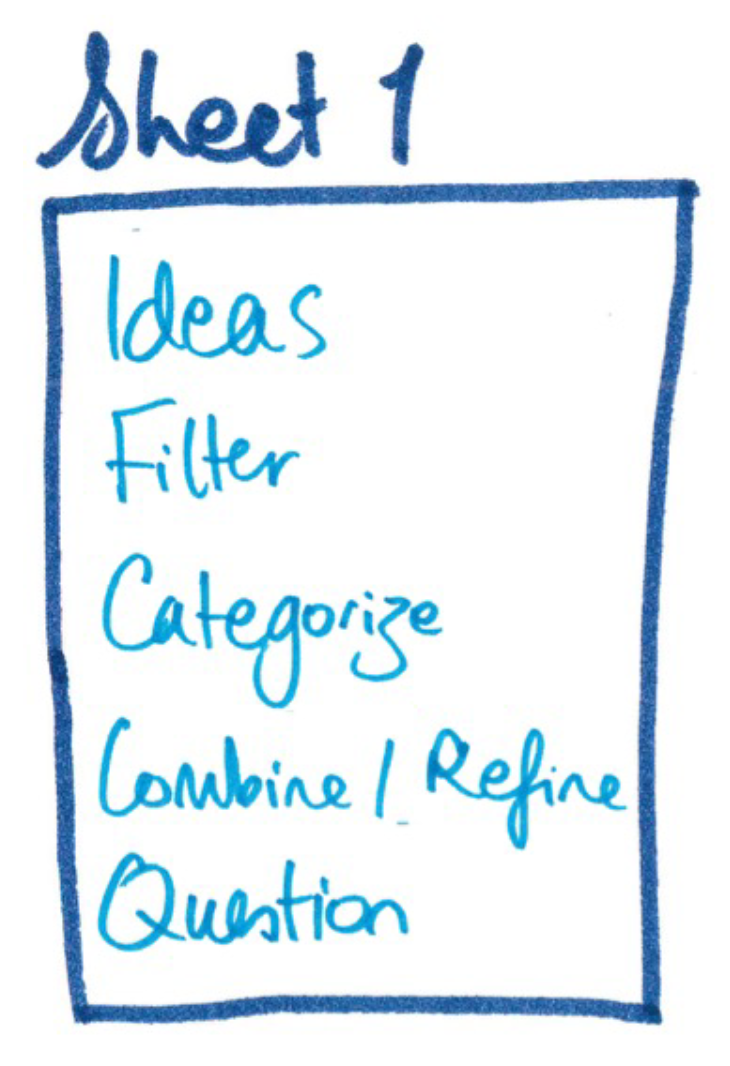 Sheet 1
Ideas
Filter
Categorize
Combine / Refine
Question